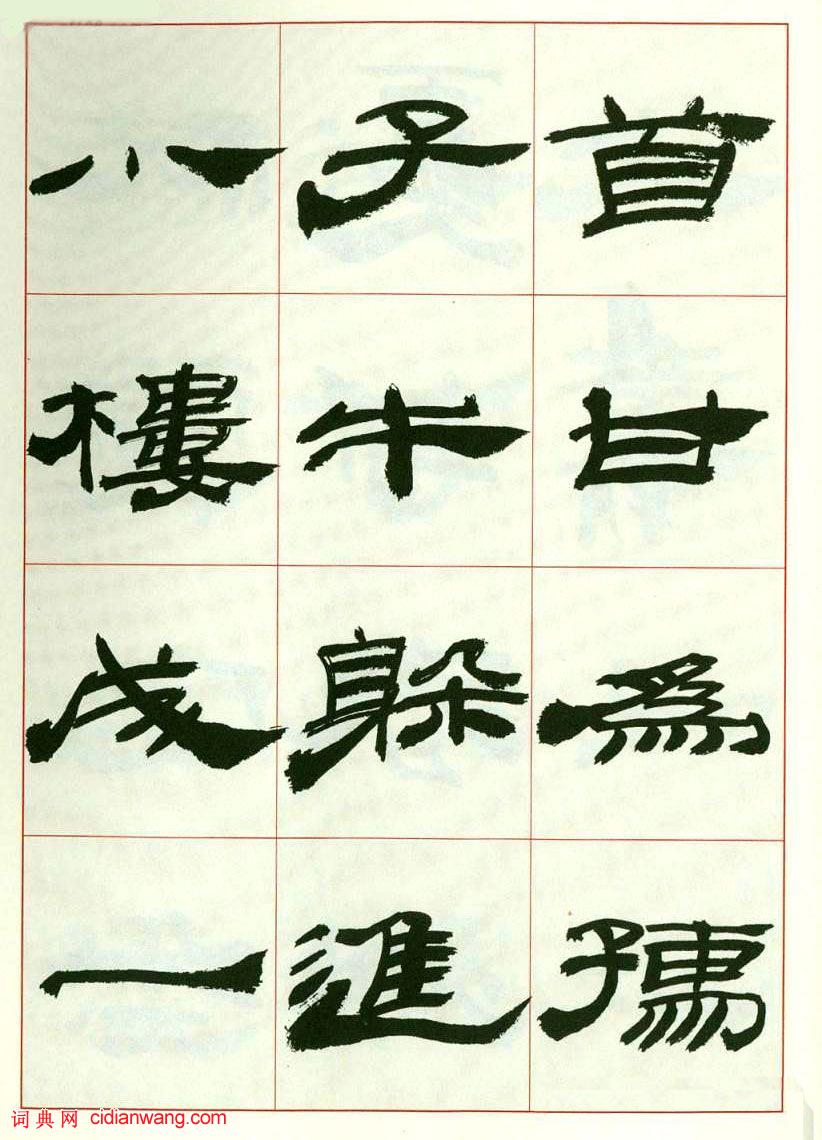 首甘為孺
子牛躲進
小樓成一
词典网 cidianwang.com